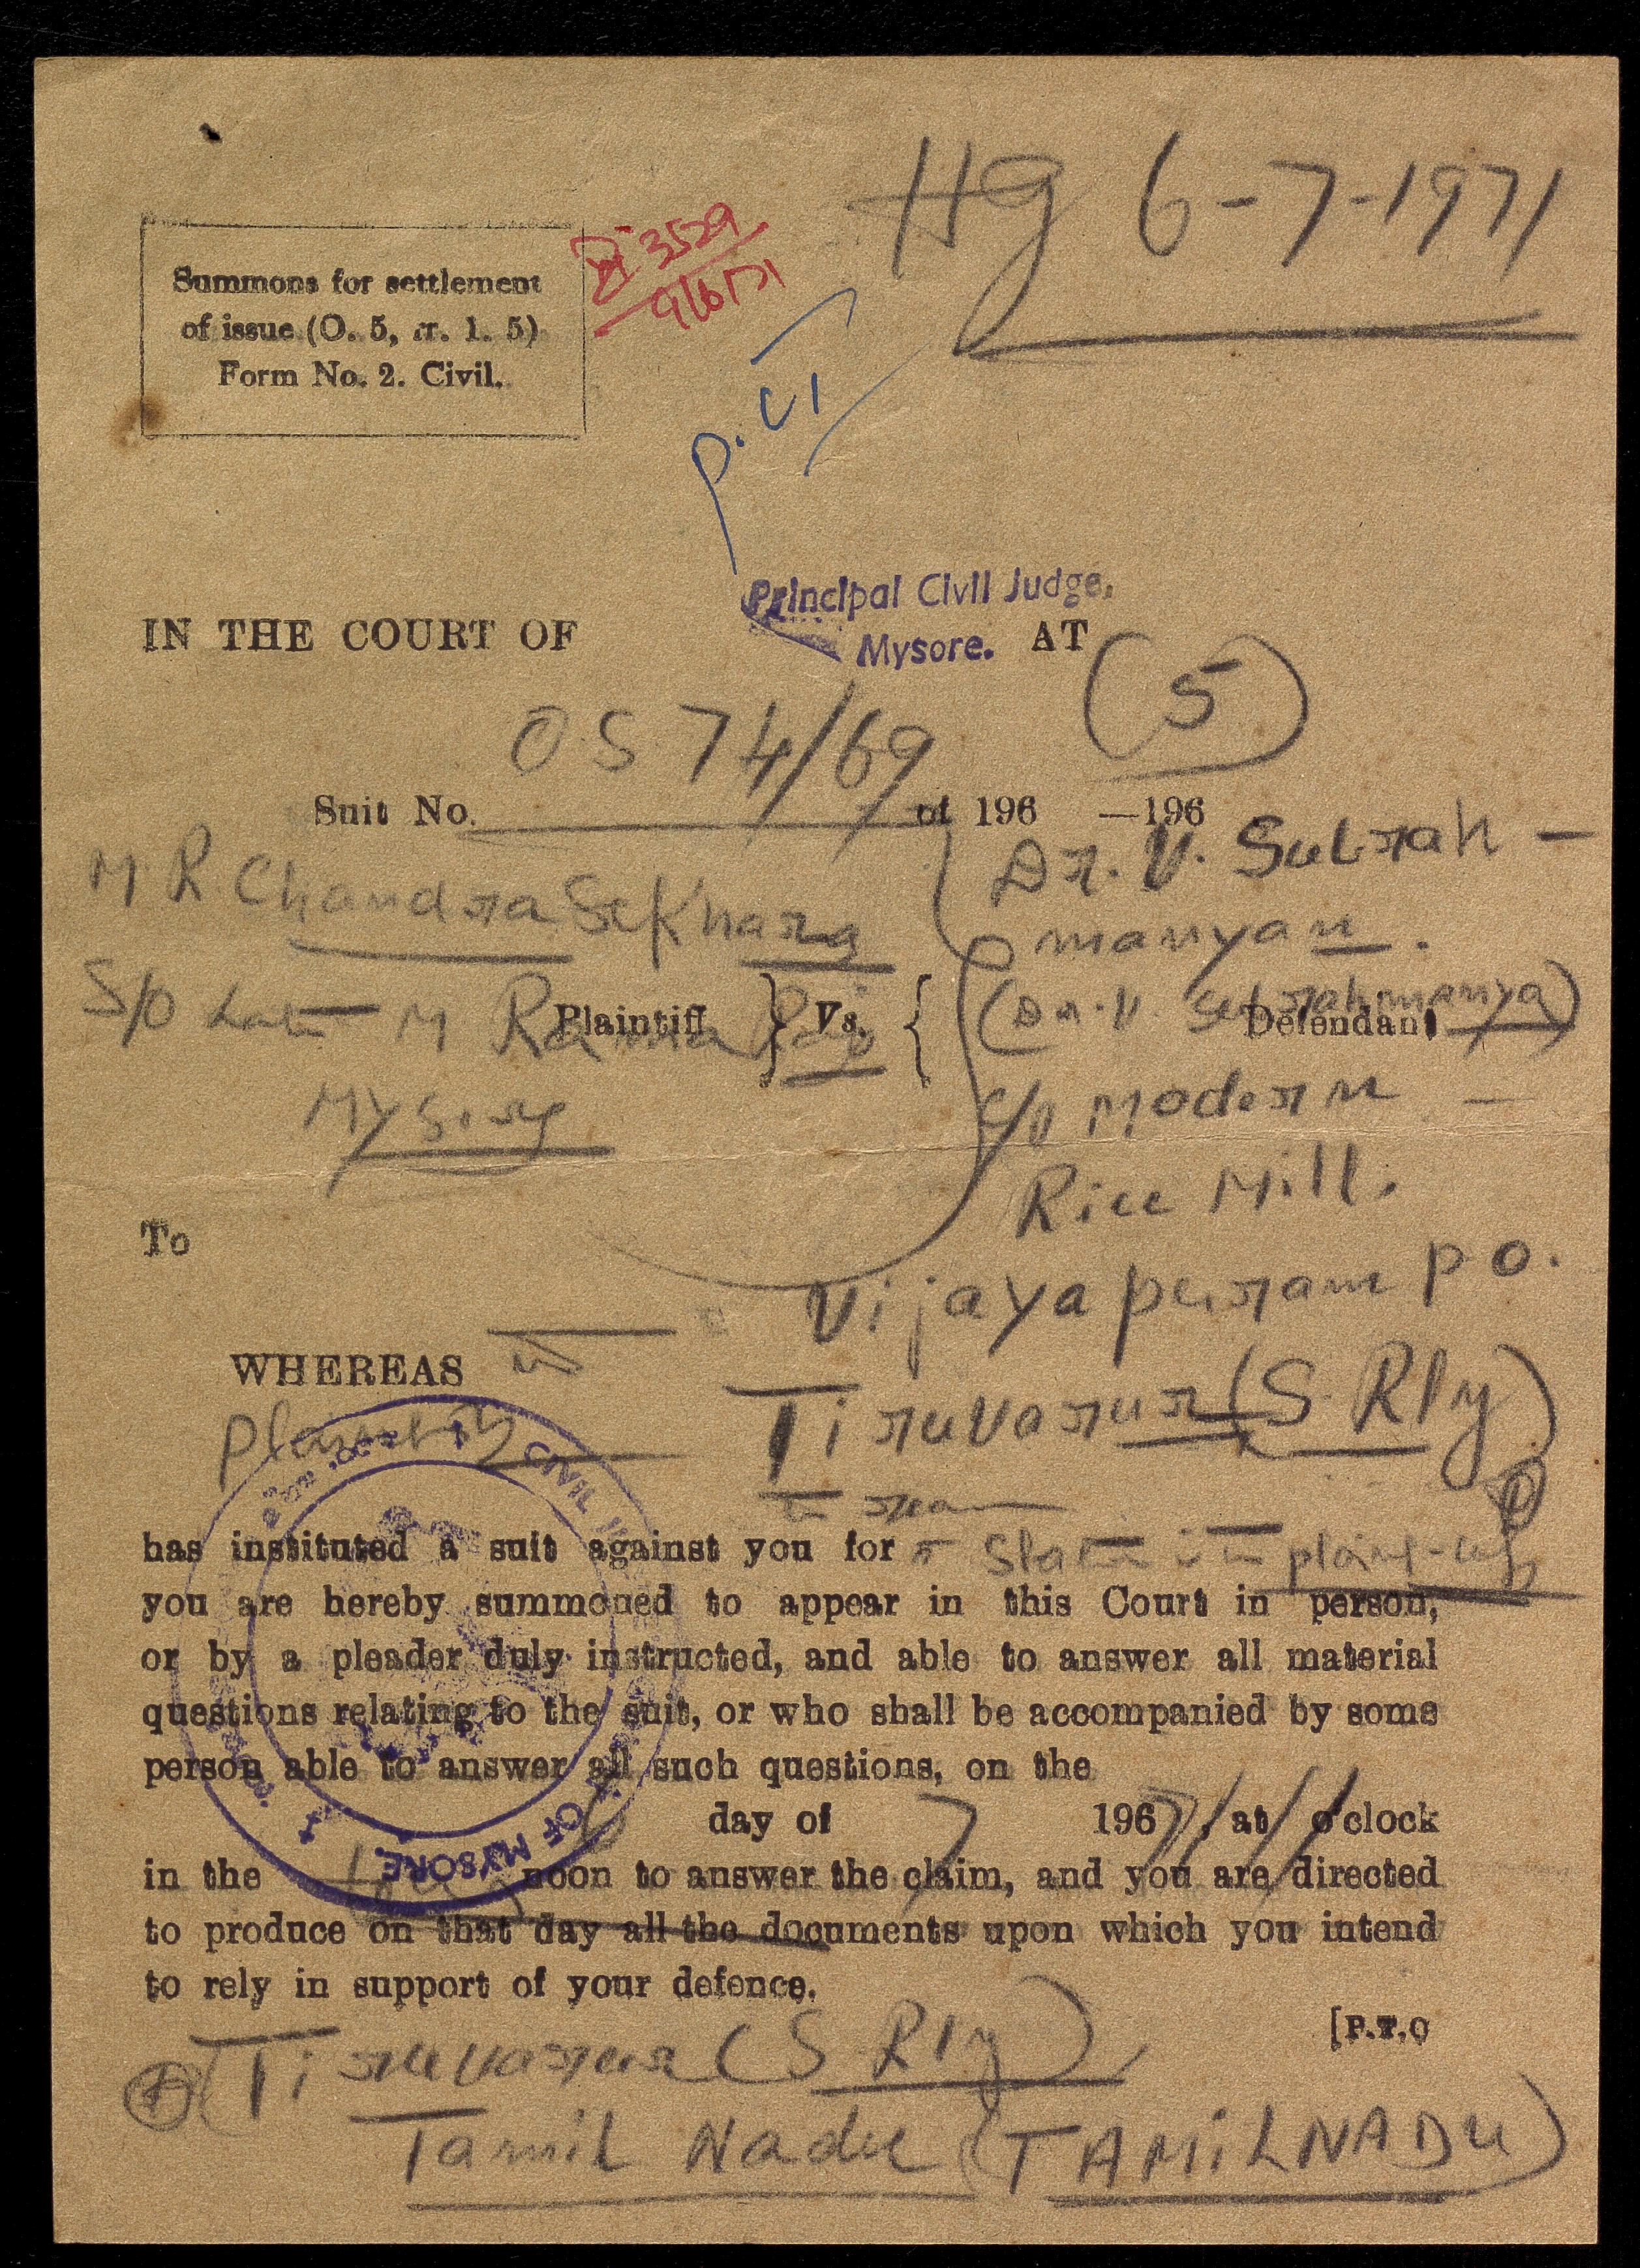 Hg 6-7-1971
3529
9/6/71
Summons for settlement
of issue (O. 5, rr. 1. 5)
Form No. 2. Civil.
P. VI
Principal Civil Judge,
IN THE COURT OF Mysore. AT
(5)
O.S 74/69
Suit No. of 196 —196
M.R. Chandra Sekhara
S/o Late M Rama
Mysore
Plaintiff } Vs. { Defendant
Dr. V. Subrah-
manyan.
(Dr. V. Subrahmanya)
C/o Modern
Rice Mill.
Vijayapuram P O.
Tiruvarur (S. Rly)
To
WHEREAS
CIVIL
OF MYSORE.
has instituted a suit against you for
you are hereby summoned to appear in this Court in person,
or by a pleader duly instructed, and able to answer all material
questions relating to the suit, or who shall be accompanied by some
person able to answer all such questions, on the
6 day of 7 1967/, at 11 o'clock
in the noon to answer the claim, and you are directed
to produce on that day all the documents upon which you intend
to rely in support of your defence.
[P.T.O
Tiruvarur (S. Rly)
Tamil Nadu (TAMiLNADU)